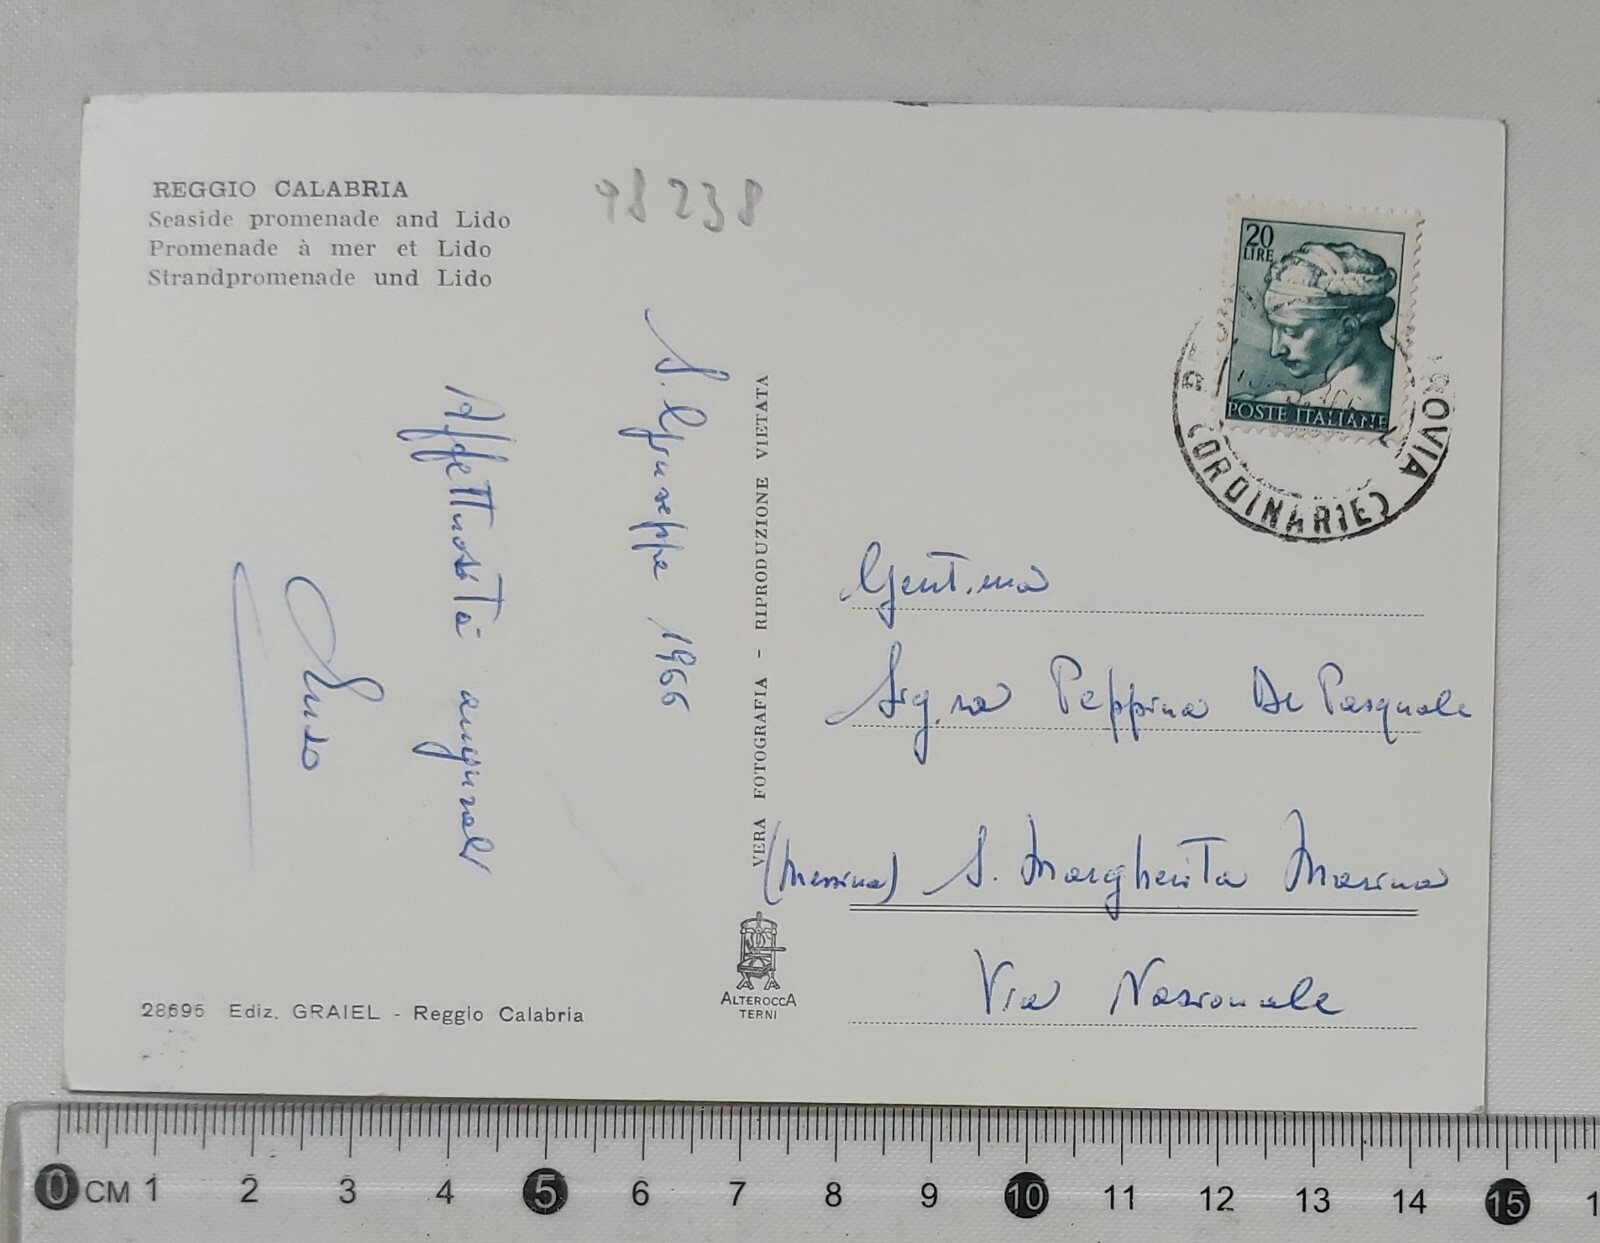 REGGIO CALABRIA
Seaside promenade and Lido
Promenade à mer et Lido
Strandpromenade und Lido
98238
S. Giuseppe 1966
Affettuosità augurali
VERA FOTOGRAFIA - RIPRODUZIONE VIETATA
20
LIRE
POSTE ITALIANE
ROVIA
(ORDINARIE)
Gent.ma
Sig.ra Peppina De Pasquale
(Messina) S. Margherita Marina
Via Nazionale
ALTEROCCA
TERNI
28695 Ediz. GRAIEL - Reggio Calabria
0 CM 1 2 3 4 5 6 7 8 9 10 11 12 13 14 15 1